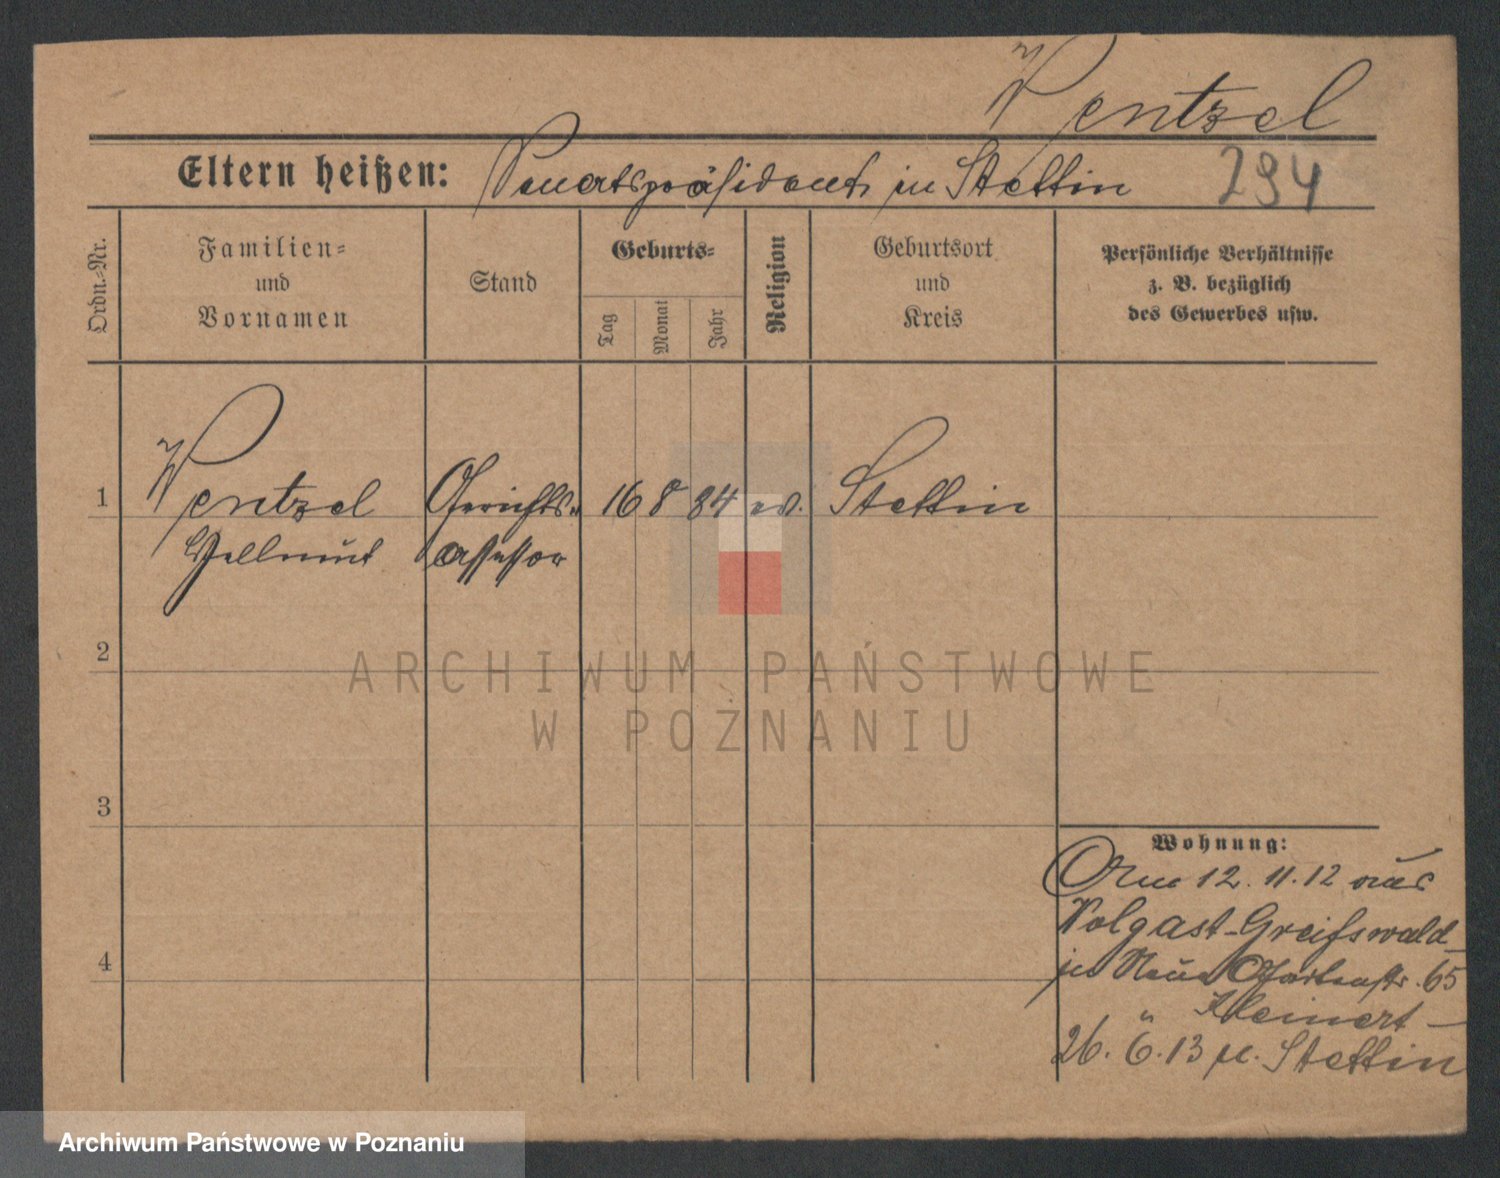 Wentzel
Eltern heißen: Senatspräsident in Stettin 294
Ordn.-Nr.
Familien-
und
Vornamen
Stand
Geburts-
Tag
Monat
Jahr
Religion
Geburtsort
und
Kreis
Persönliche Verhältnisse
z. B. bezüglich
des Gewerbes usw.
1 Wentzel Gerichts- 16 8 84 ev. Stettin
Hellmut assessor
2
ARCHIWUM PAŃSTWOWE
W POZNANIU
3
Wohnung:
Am 12.11.12 aus
Wolgast-Greifswald
in Neue Gartenstr. 65
Kleinert -
26. 6. 13 n. Stettin
4
Archiwum Państwowe w Poznaniu